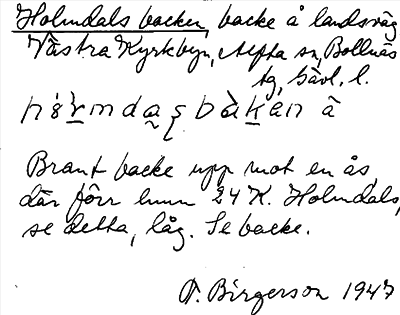 Holmdals backen, backe å landsväg
Västra Kyrkbyn, Alfta sn, Bollnäs
tg, Gävl. l.
å
Brant backe upp mot en ås,
där förr hmn 24 K. Holmdals,
se detta, låg. Se backe.
T. Birgerson 1947